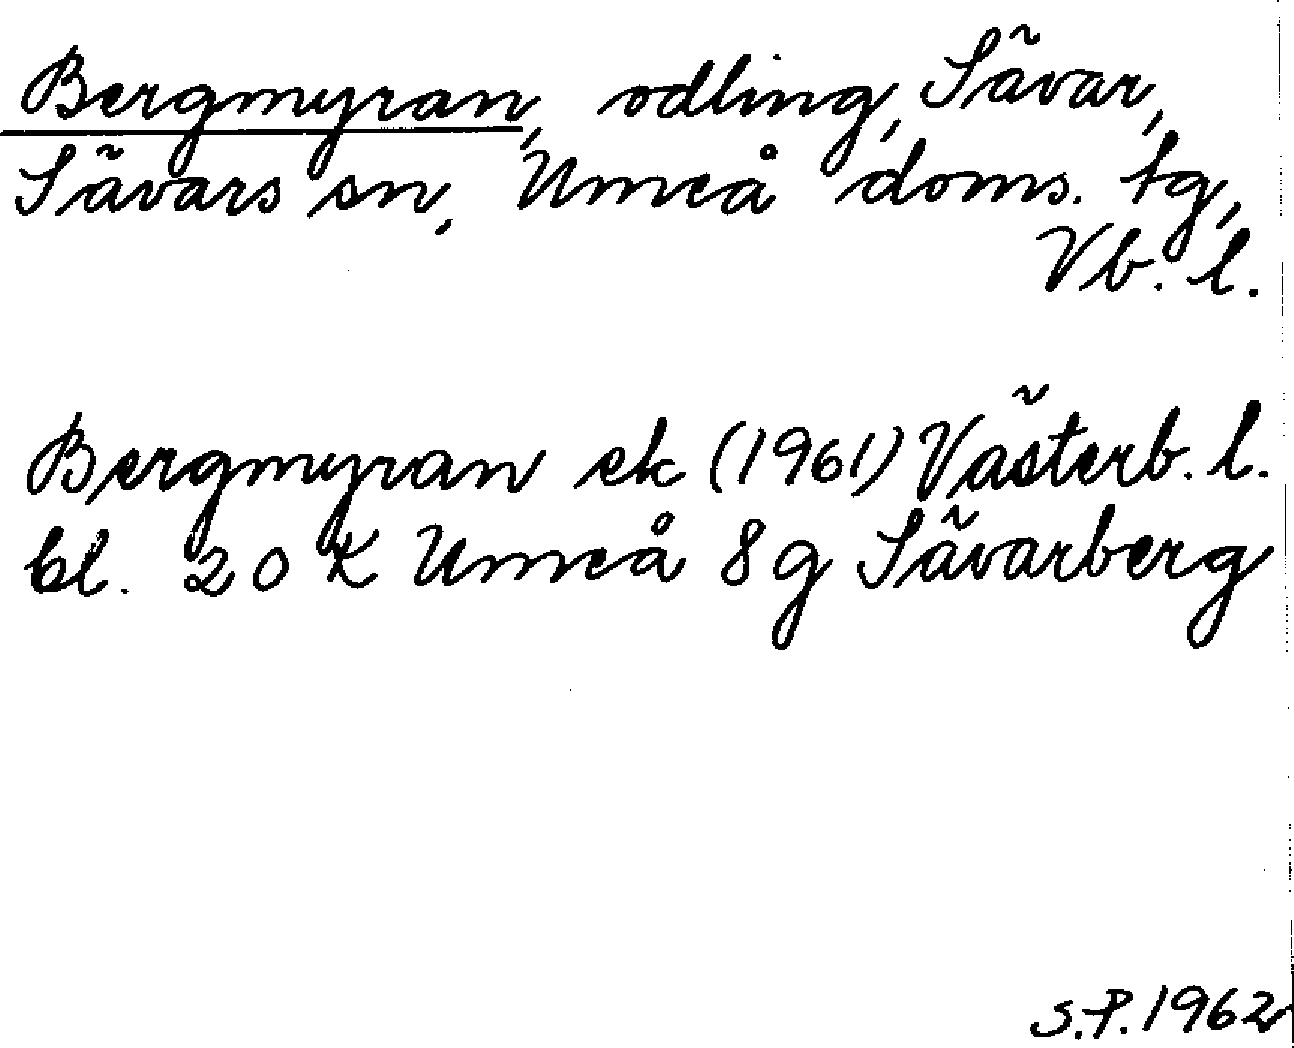 Bergmyran, odling, Sävar,
Sävars sn, Umeå doms. tg,
Vb. l.
Bergmyran ek (1961) Västerb. l.
bl. 20 K Umeå 8g Sävarberg
S.P. 1962